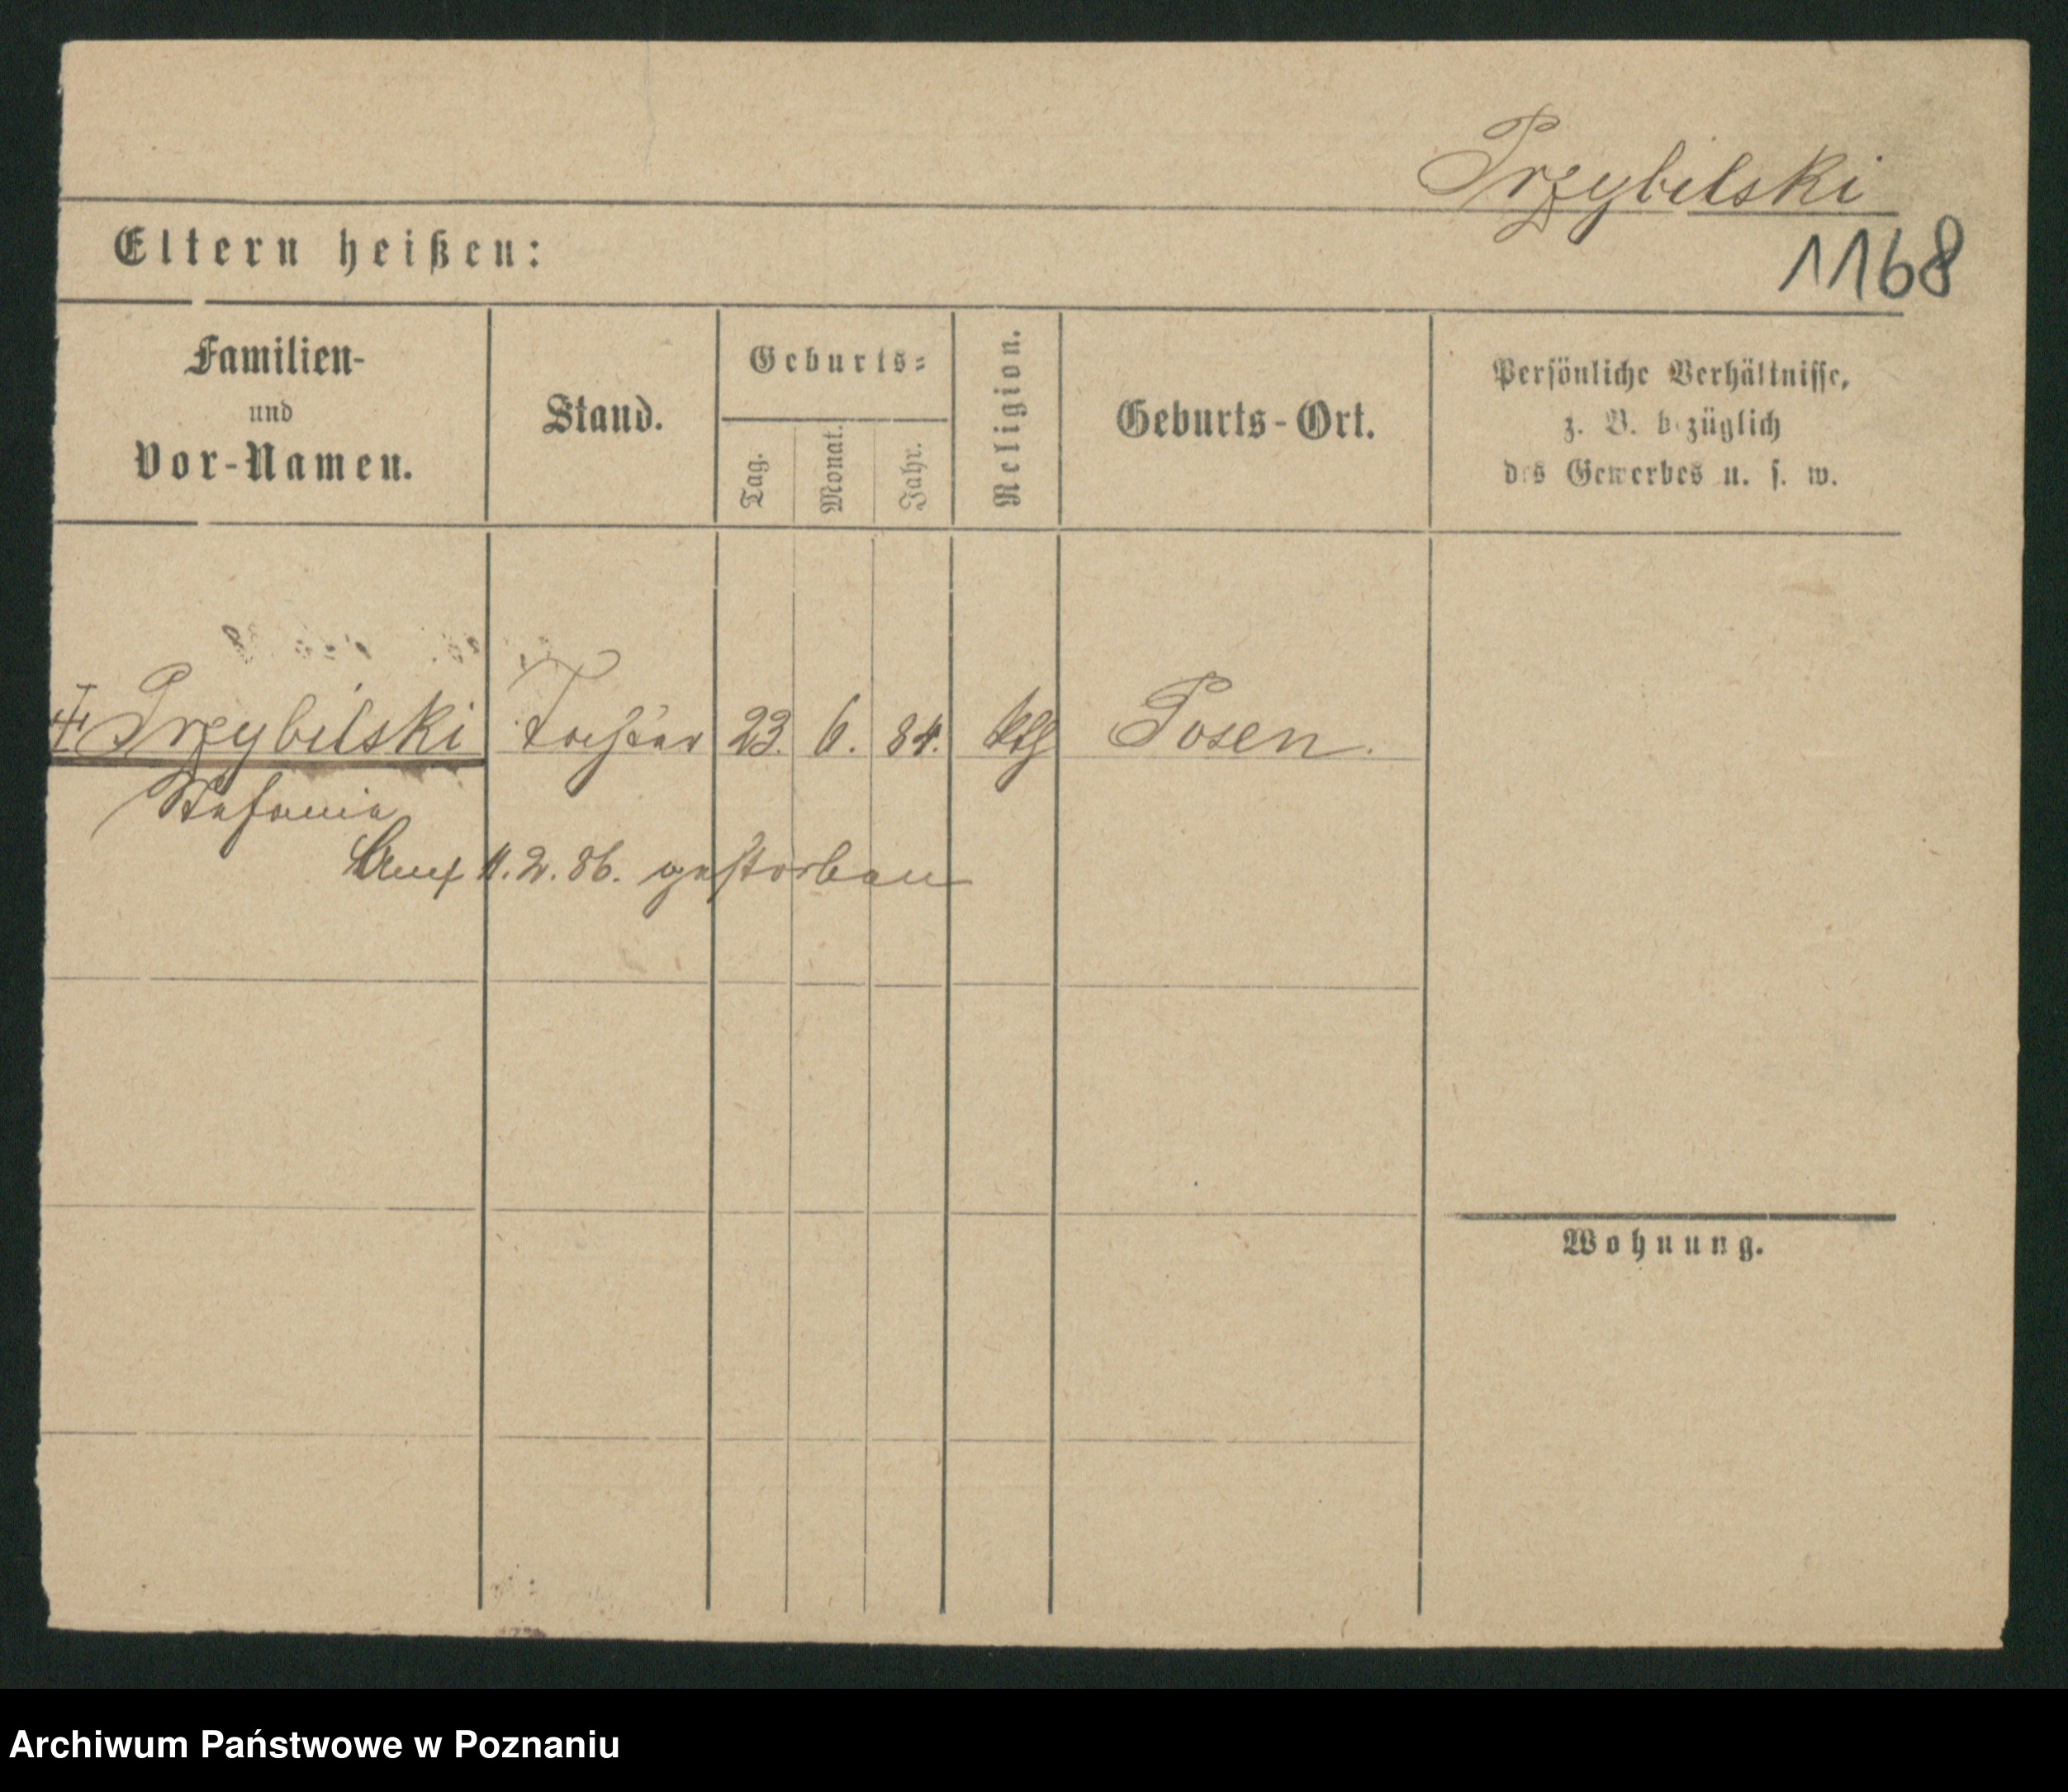 Przybilski
1168
Eltern heißen:
Familien-
und
Vor-Namen.
Stand.
Geburts-
Tag.
Monat.
Jahr.
Religion.
Geburts-Ort.
Persönliche Verhältnisse,
z. B. bezüglich
des Gewerbes u. s. w.
Przybilski Tochter 23. 6. 84. ktl Posen.
Stefania
11. 2. 86. gestorben
Wohnung.
Archiwum Państwowe w Poznaniu